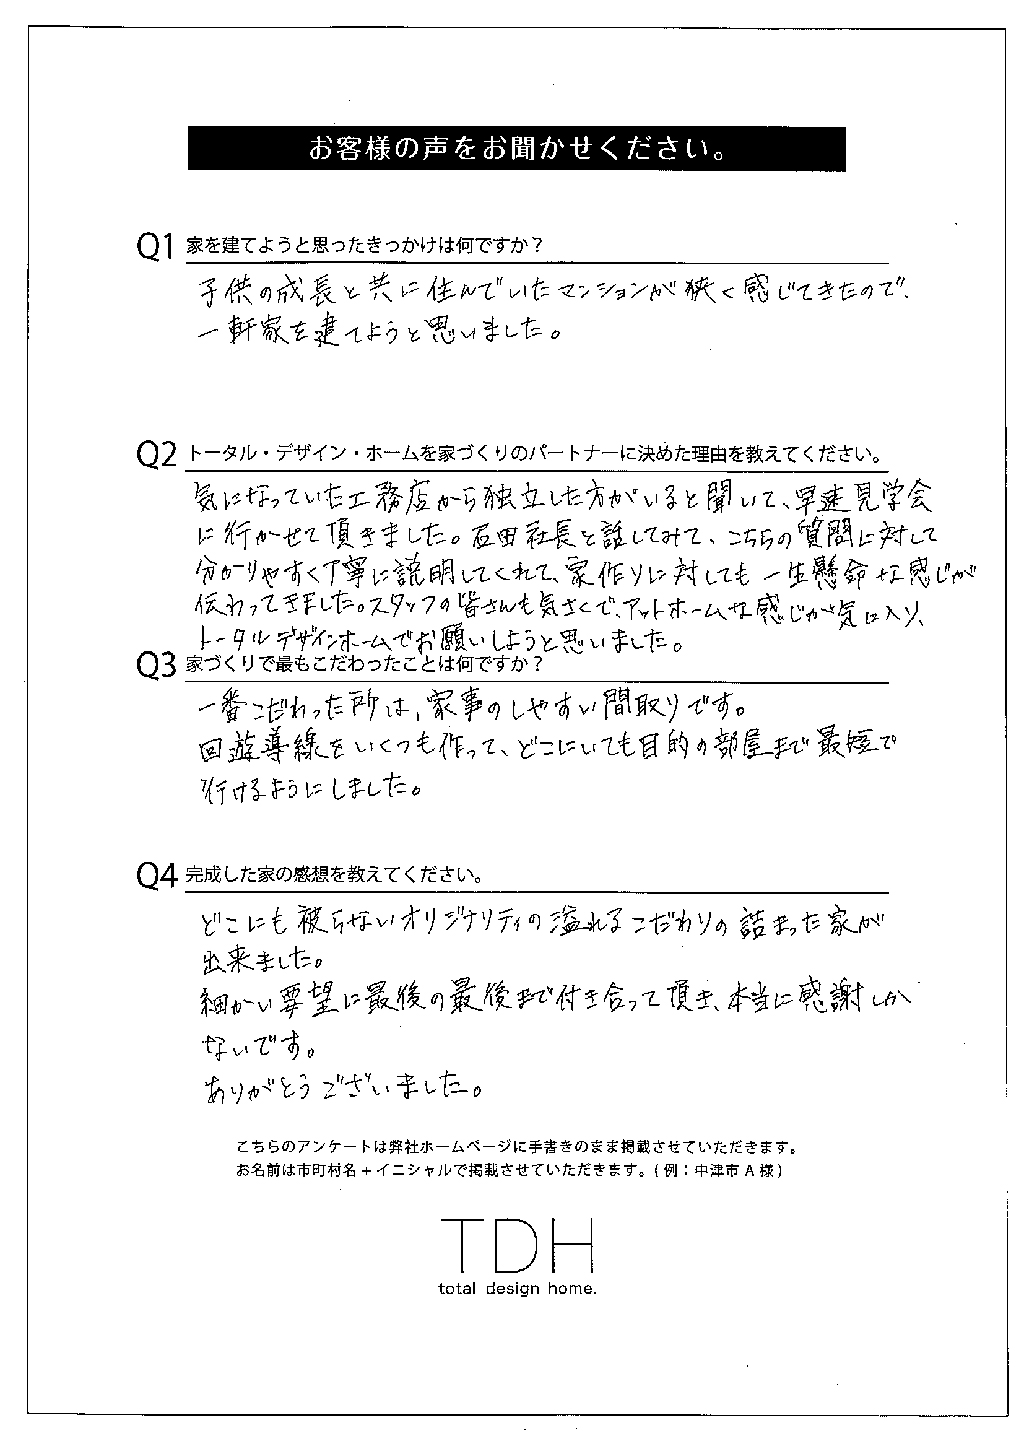 お客様の声をお聞かせください。
Q1 家を建てようと思ったきっかけは何ですか？
子供の成長と共に住んでいたマンションが狭く感じてきたので、
一軒家を建てようと思いました。
Q2 トータル・デザイン・ホームを家づくりのパートナーに決めた理由を教えてください。
気になっていた工務店から独立した方がいると聞いて、早速見学会
に行かせて頂きました。石田社長と話してみて、こちらの質問に対して
分かりやすく丁寧に説明してくれて、家作りに対しても一生懸命な感じが
伝わってきました。スタッフの皆さんも気さくで、アットホームな感じが気に入り、
トータルデザインホームでお願いしようと思いました。
Q3 家づくりで最もこだわったことは何ですか？
一番こだわった所は、家事のしやすい間取りです。
回遊導線をいくつも作って、どこにいても目的の部屋まで最短で
行けるようにしました。
Q4 完成した家の感想を教えてください。
どこにも被らないオリジナリティの溢れるこだわりの詰まった家が
出来ました。
細かい要望に最後の最後まで付き合って頂き、本当に感謝しか
ないです。
ありがとうございました。
こちらのアンケートは弊社ホームページに手書きのまま掲載させていただきます。
お名前は市町村名＋イニシャルで掲載させていただきます。(例：中津市 A 様)
TDH
total design home.